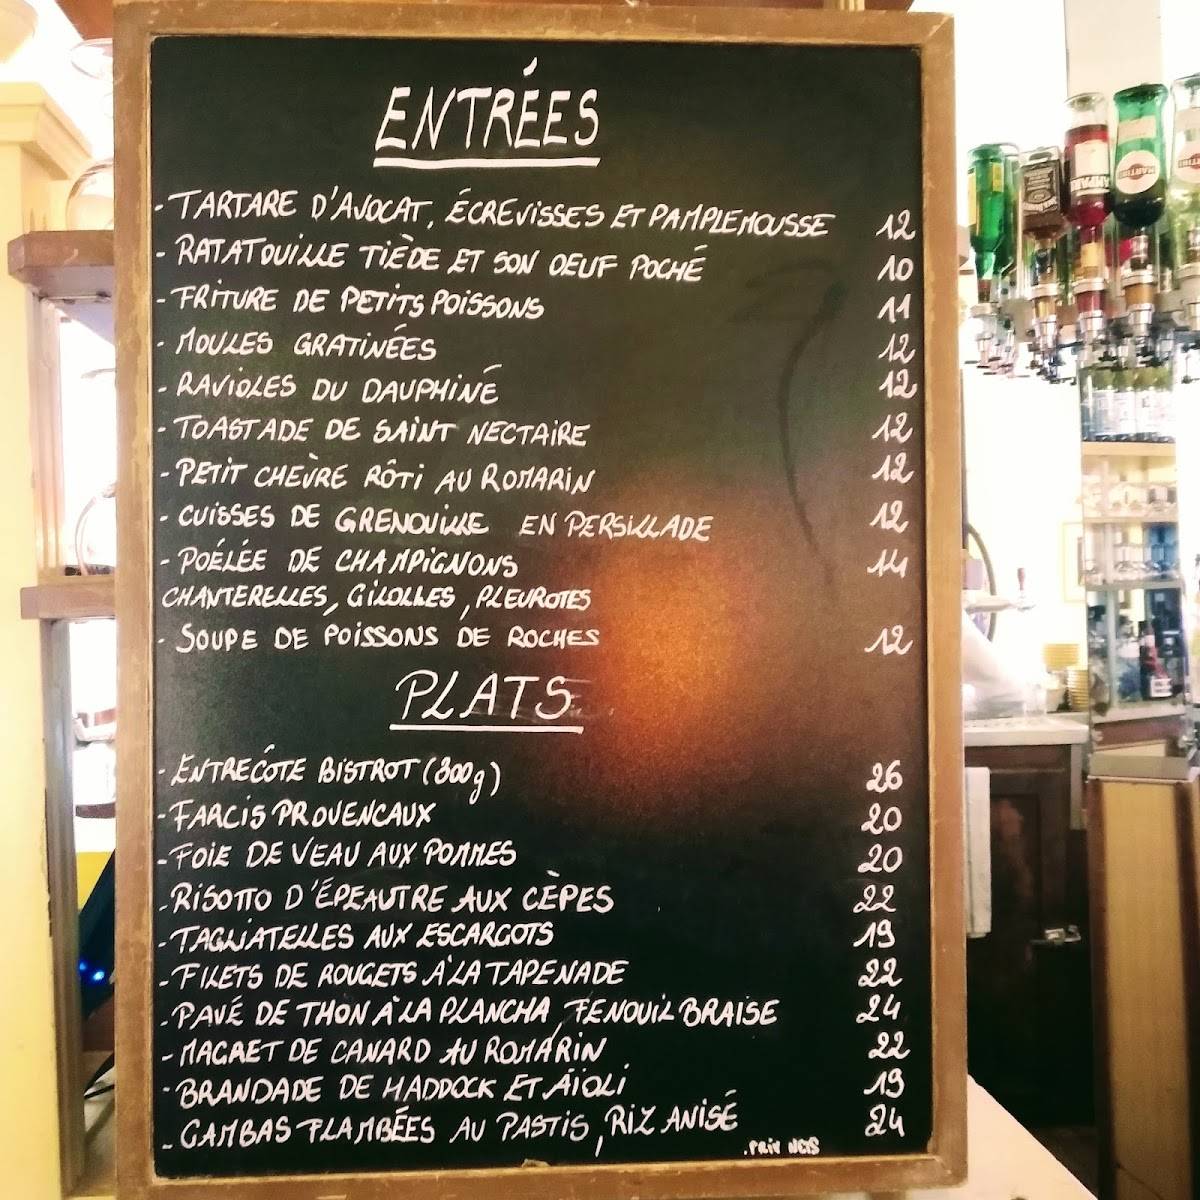 ENTRÉES
- TARTARE D'AVOCAT, ÉCREVISSES ET PAMPLEMOUSSE 12
- RATATOUILLE TIÈDE ET SON OEUF POCHÉ 10
- FRITURE DE PETITS POISSONS 11
- MOULES GRATINÉES 12
- RAVIOLES DU DAUPHINÉ 12
- TOASTADE DE SAINT NECTAIRE 12
- PETIT CHÈVRE RÔTI AU ROMARIN 12
- CUISSES DE GRENOUILLE EN PERSILLADE 12
- POÉLÉE DE CHAMPIGNONS 14
CHANTERELLES, GILOLLES, PLEUROTES
- SOUPE DE POISSONS DE ROCHES 12
PLATS
- ENTRECÔTE BISTROT (300g) 26
- FARCIS PROVENCAUX 20
- FOIE DE VEAU AUX POMMES 20
- RISOTTO D'ÉPEAUTRE AUX CÈPES 22
- TAGLIATELLES AUX ESCARGOTS 19
- FILETS DE ROUGETS À LA TAPENADE 22
- PAVÉ DE THON À LA PLANCHA, FENOUIL BRAISE 24
- MAGRET DE CANARD AU ROMARIN 22
- BRANDADE DE HADDOCK ET AÏOLI 19
- GAMBAS FLAMBÉES AU PASTIS, RIZ ANISÉ 24
. PRIX NETS
MARTINI